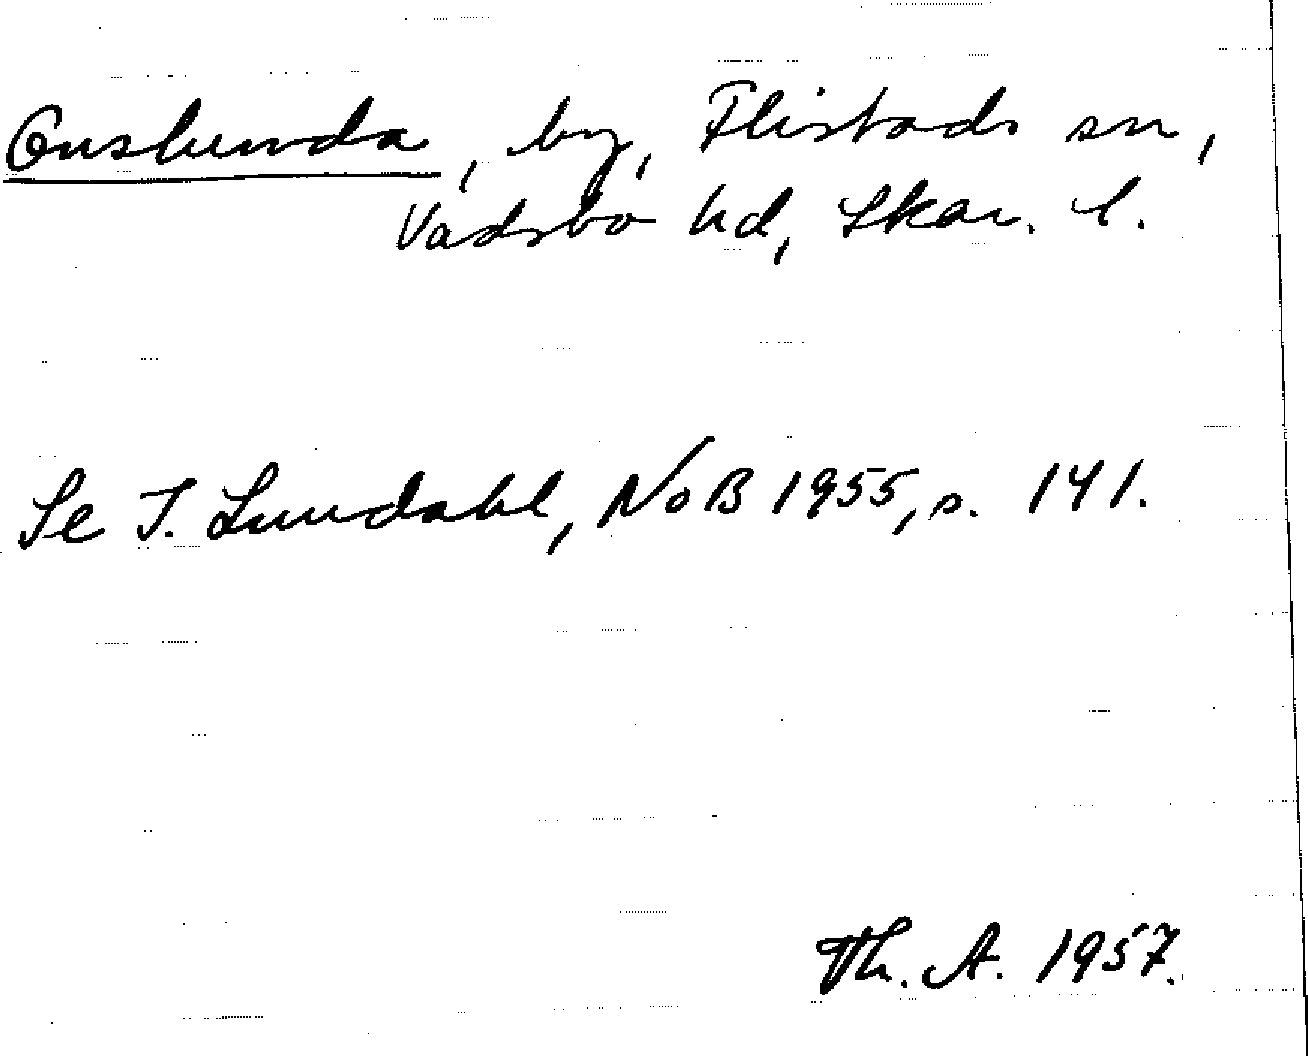 Onslunda, by, Flistads sn,
Vadsbo hd, Skar. l.
Se I. Lundahl, NoB 1955, s. 141.
Th. A. 1957.